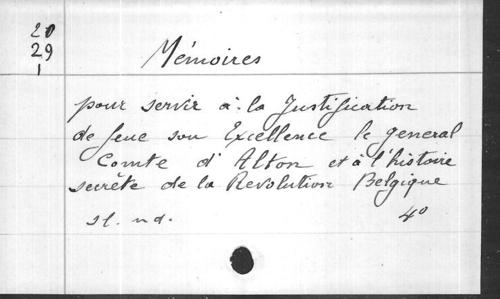 20
29
1
Mémoires
pour servir à la Justification
de feue son Excellence le general
Comte d'Alton et à l'histoire
secrête de la Revolution Belgique
sl. nd. 4°